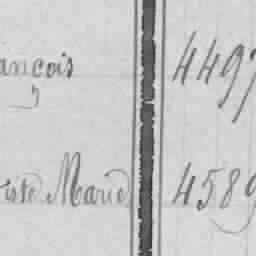 ançois 4497
iste Marie 4589